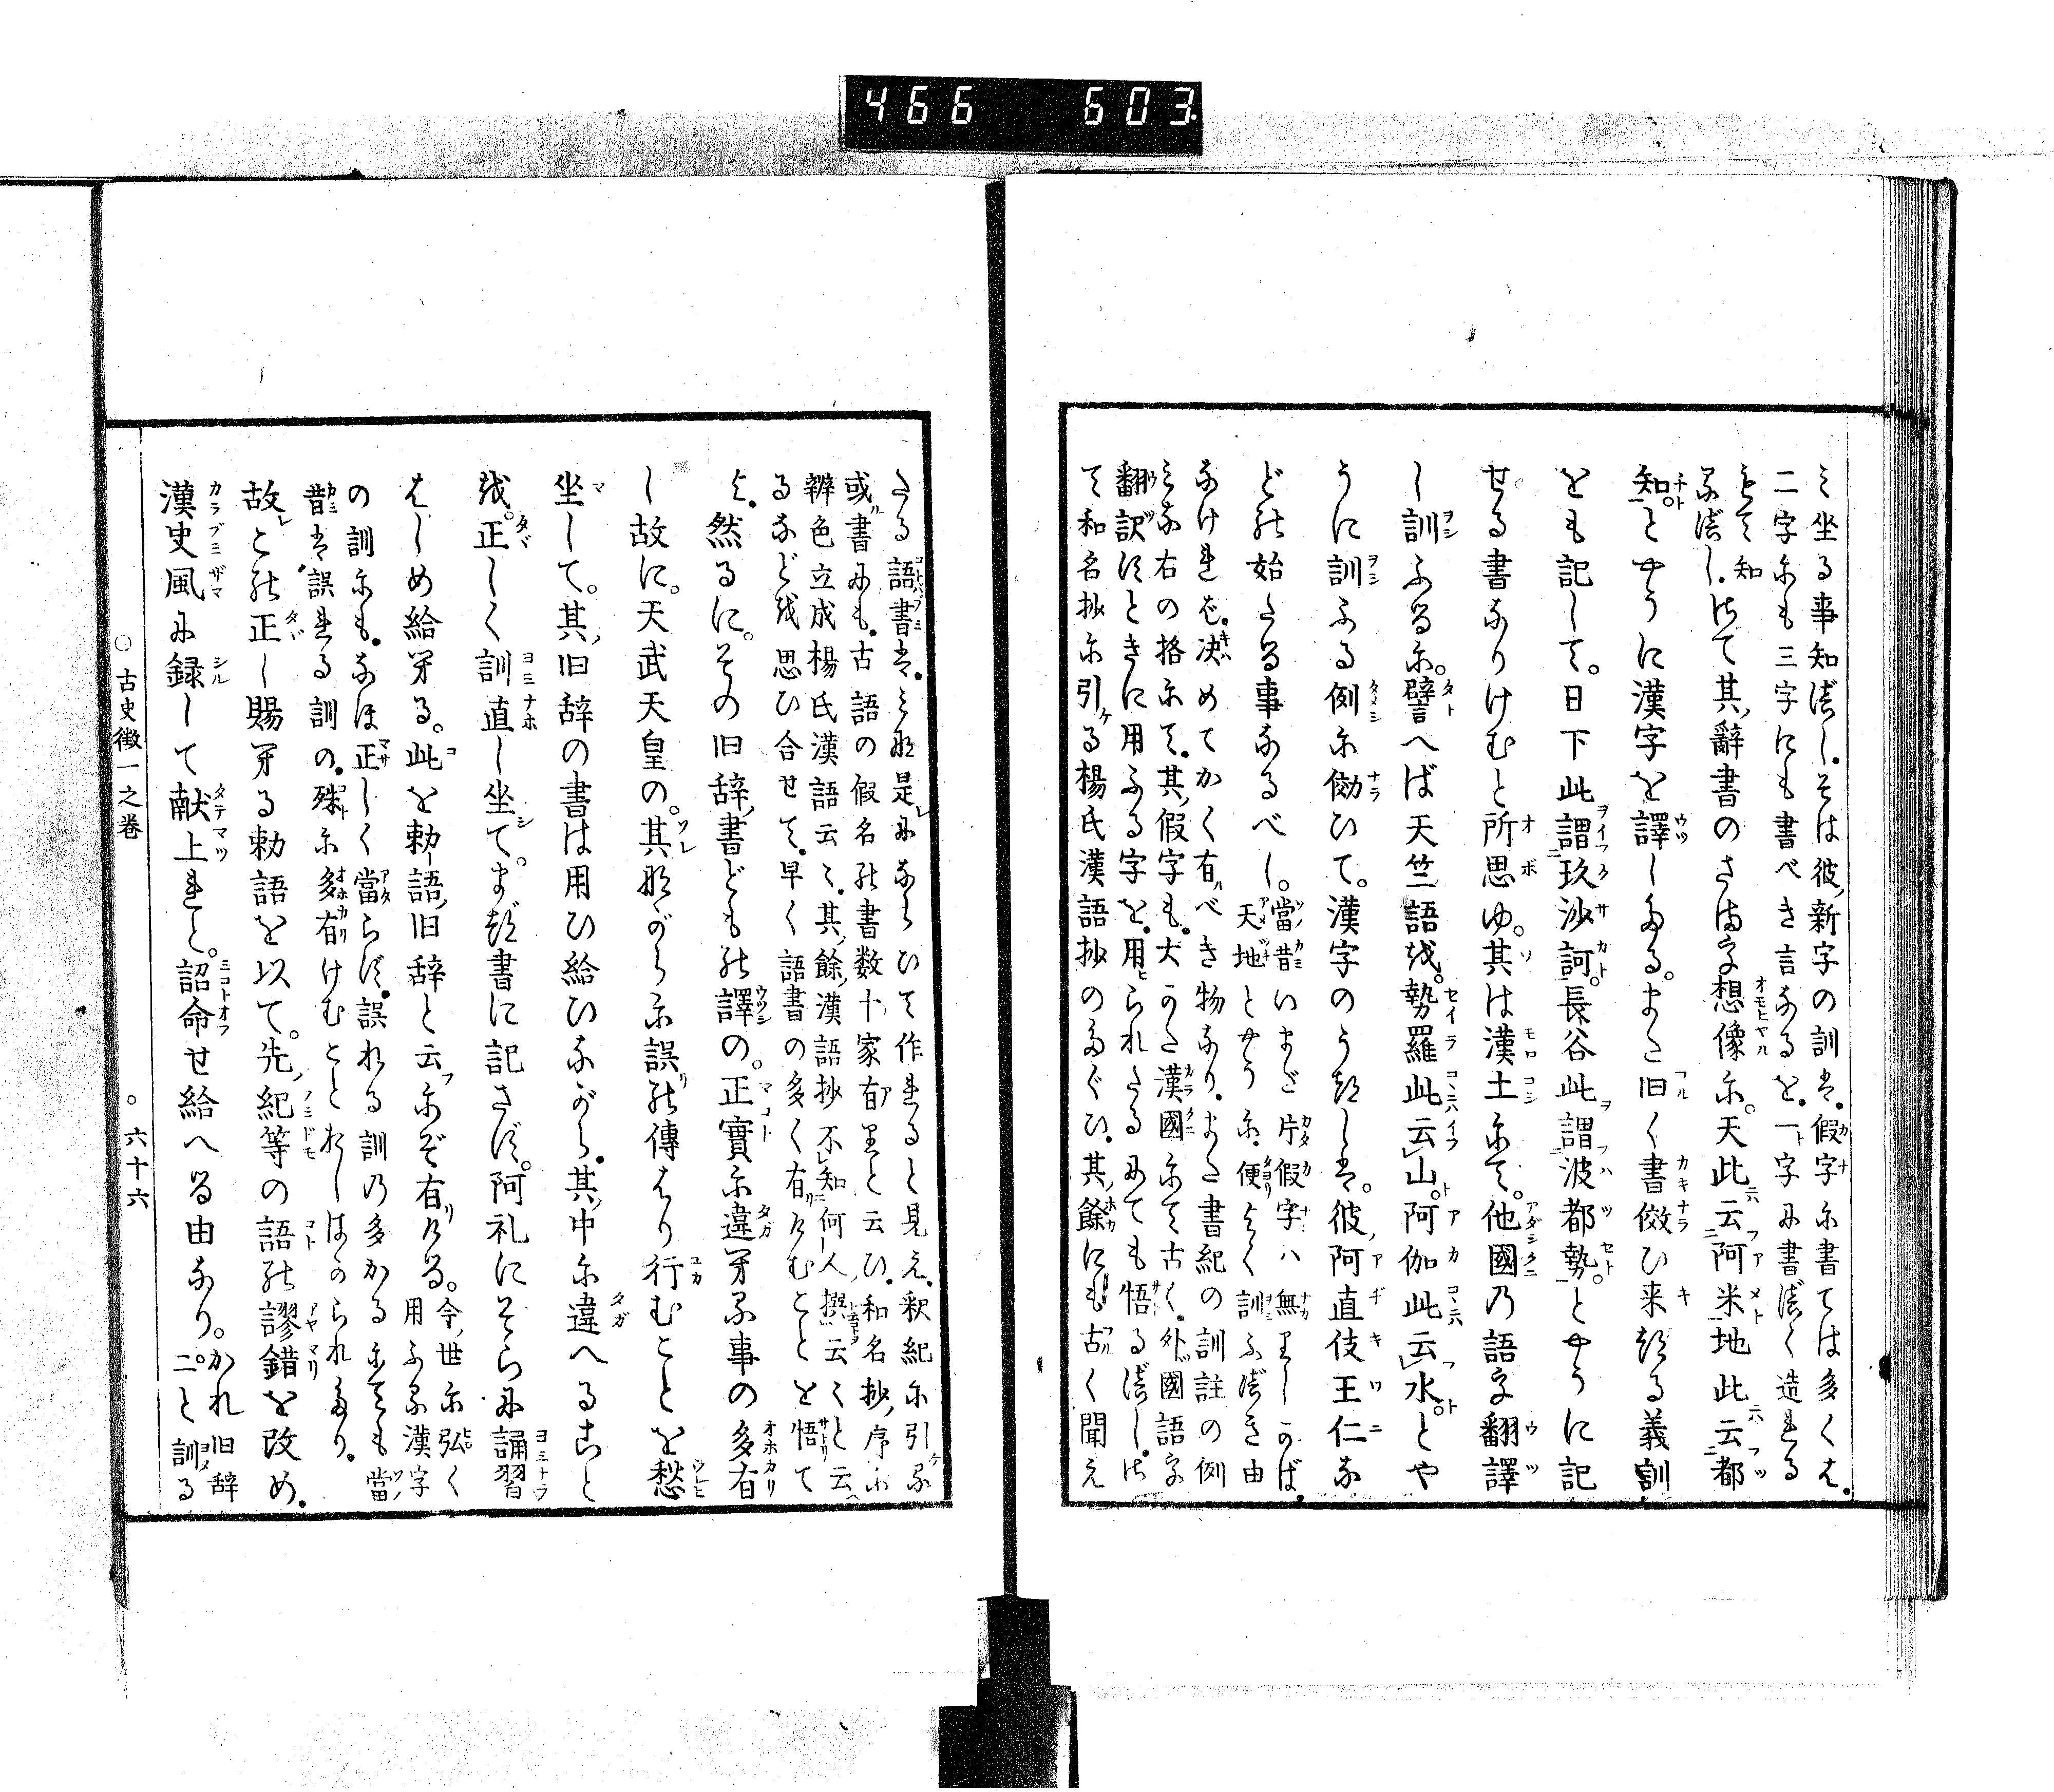 466 603
ミ坐る事知べし。そは彼新字の訓は。假字に書ては多くは。
二字にも三字にも書べき言なるを。一字に書べく造れる
もて知
るべし。はて其辭書のさまを想像に。天此云阿米地此云都
知。とやうに漢字を譯しある。また旧く書傚ひ来れる義訓
をも記して。日下此謂玖沙訶。長谷此謂波都勢。とやうに記
せる書なりけむと所思ゆ。其は漢土にて。他國の語を翻譯
し訓ふるに。譬へば天竺語を。勢羅此云山。阿伽此云水。とや
うに訓ふる例に傚ひて。漢字のうたしは。彼阿直伎王仁な
どの始たる事なるべし。當昔いまだ片假字ハ無りしかば。
天地とやうに。便よく訓ふべき由
なければ。决めてかく有べき物なり。また書紀の訓註の例
みな右の格にて。其假字も。大かた漢國にて古く。外國語を
翻訳すときに用ふる字を。用られたるにても悟るべし。は
て和名抄に引る楊氏漢語抄のたぐひ。其餘にも古く聞え
たる語書は。みな是にならひて作れると見え。釈紀に引る
或書にも。古語の假名の書数十家有りと云ひ。和名抄序に
辨色立成楊氏漢語云々。其餘漢語抄不知何人撰云々と云へ
るなどを思ひ合せて。早く語書の多く有けむことを悟て
よ。然るに。その旧辞書どもの譯の。正實に違へる事の多有
し故に。天武天皇の。其ながらに誤の傳はり行むことを愁
坐して。其旧辞の書は用ひ給ひながら。其中に違へること
を。正しく訓直し坐て。まだ書に記さず。阿礼にそらに誦習
はしめ給へる。此を勅語旧辞と云にぞ有ける。今世に弘く
用ふる漢字
の訓にも。なほ正しく當らず。誤れる訓の多かるにても當
昔は誤れる訓の。殊に多有けむことおしはかられたり。
故この正し賜へる勅語を以て。先紀等の語の謬錯を改め。
漢史風に録して献上れと。詔命せ給へる由なり。かれ旧辞
二と訓る
○古史徴一之巻 ○六十六